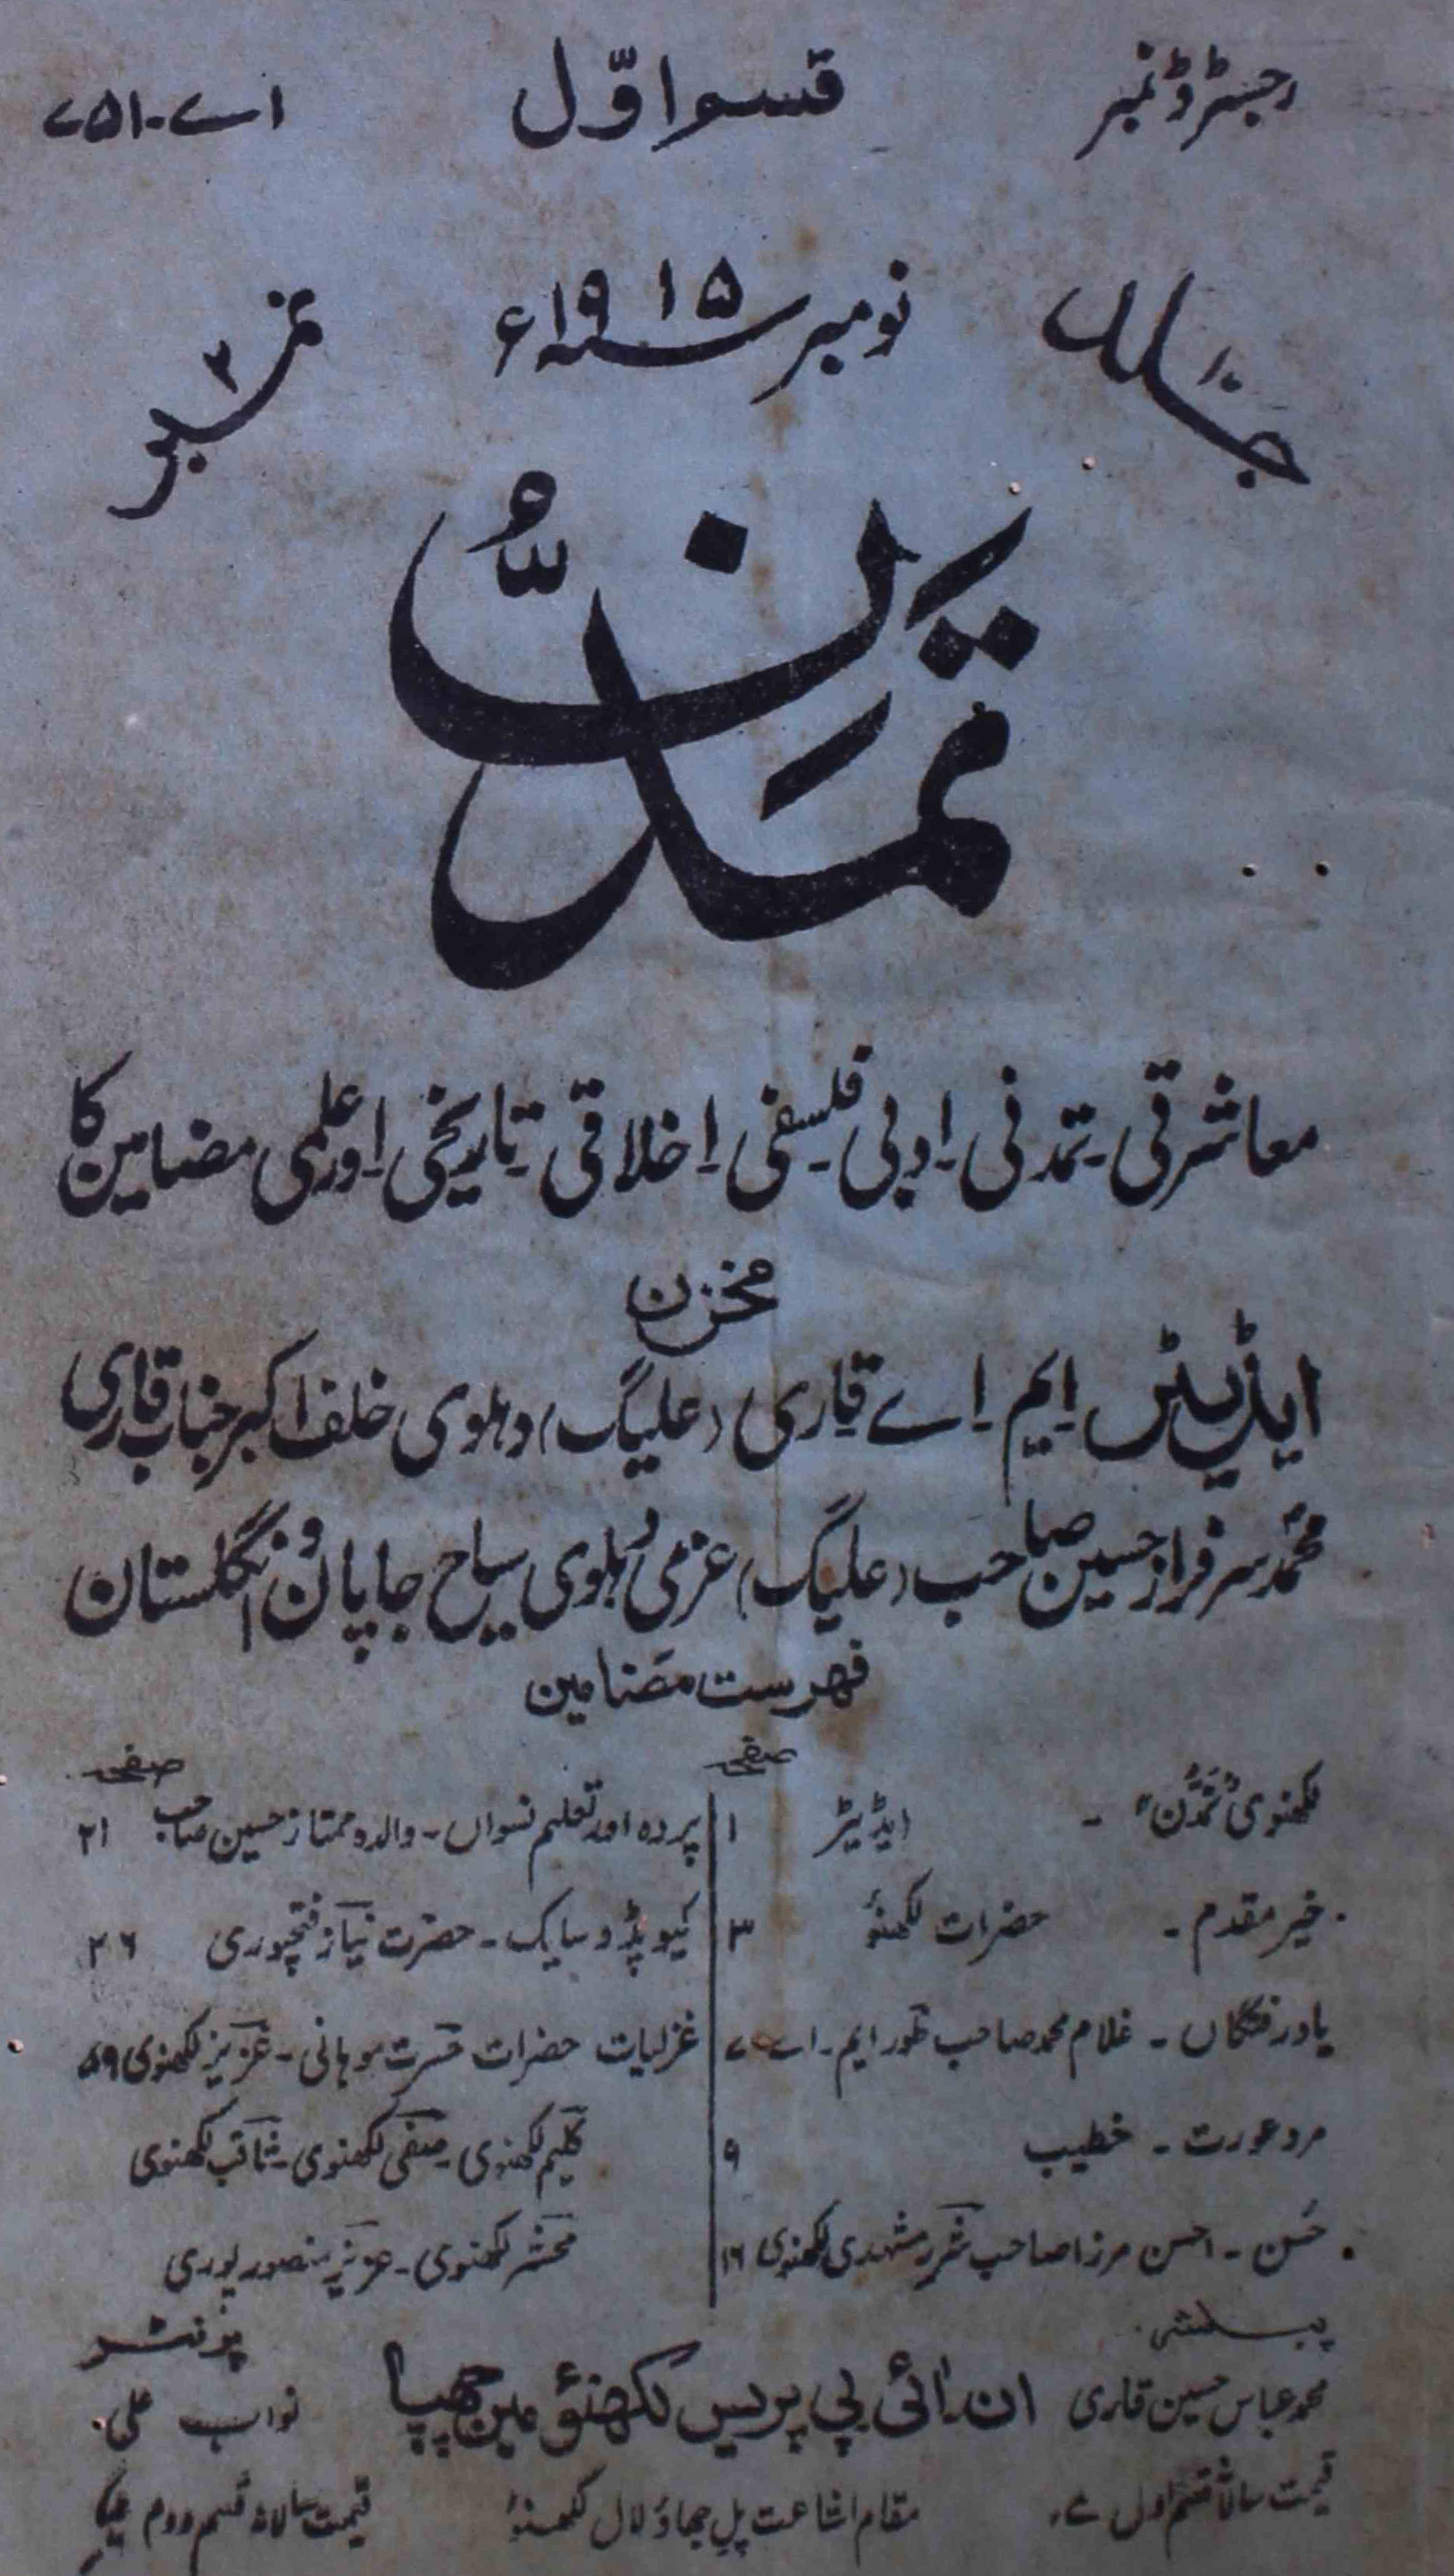 رجسٹرڈ نمبر قسم اوّل اے-۷۵۱
جلد ۱۰ نومبر سنہ ۱۹۱۵ء نمبر ۲
تمدّن
معاشرتی-تمدنی-ادبی-فلسفی-اخلاقی-تاریخی-اور علمی مضامین کا
مخزن
ایڈیٹر ایم-اے قاری (علیگ) دہلوی خلف اکبر جناب قاری
محمد سرفراز حسین صاحب (علیگ) عزمی دہلوی سیاح جاپان و انگلستان
فہرست مضامین
صفحہ
لکھنوی "تمدن" - ایڈیٹر ۱
خیر مقدم - حضرات لکھنؤ ۳
یاد رفتگاں - غلام محمد صاحب طور ایم-اے ۷
مرد عورت - خطیب ۹
حُسن - احسن مرزا صاحب شرر مشہدی لکھنوی ۱۶
صفحہ
پردہ اور تعلیم نسواں - والدہ ممتاز حسین صاحب ۲۱
کیوپڈ و سایک - حضرت نیاز فتحپوری ۲۶
غزلیات حضرات حسرت موہانی - عزیز لکھنوی ۵۹
کلیم لکھنوی - صفی لکھنوی - ثاقب لکھنوی
محشر لکھنوی - عزیز منصور پوری
پبلشر پرنٹر
محمد عباس حسین قاری ان ڈائی پی پریس لکھنؤ مین چھپا نواب علی
قیمت سالانہ قسم اول مقام اشاعت پل جھاؤ لال لکھنؤ قیمت سالانہ قسم دوم